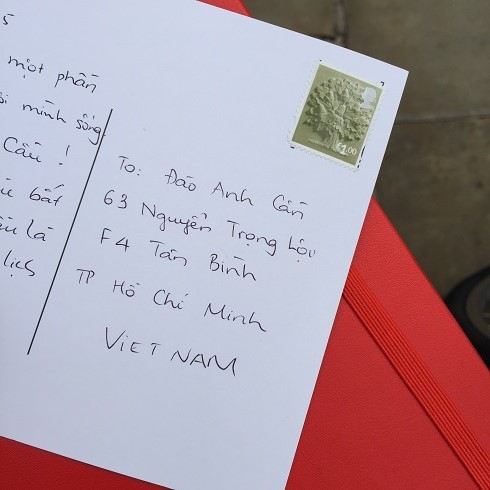 5
một phần
mình sống
Cần !
bất
là
lịch
£1.00
To: Đào Anh Cần
63 Nguyễn Trọng Lội
F4 Tân Bình
TP Hồ Chí Minh
VIET NAM